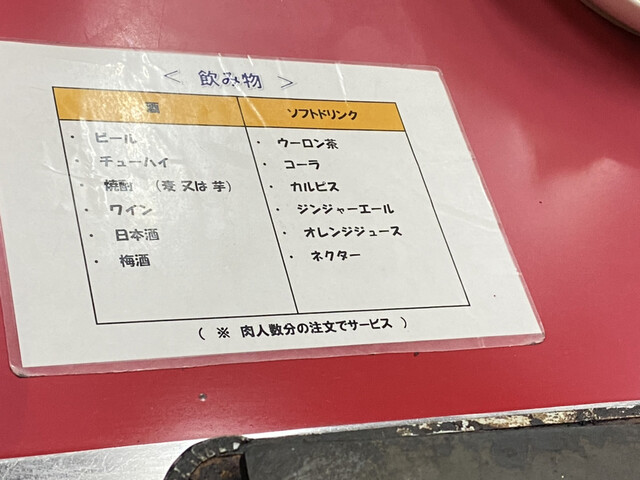 ＜ 飲み物 ＞
酒 ソフトドリンク
・ ビール ・ ウーロン茶
・ チューハイ ・ コーラ
・ 焼酎 （麦 又は 芋） ・ カルピス
・ ワイン ・ ジンジャーエール
・ 日本酒 ・ オレンジジュース
・ 梅酒 ・ ネクター
（ ※ 肉人数分の注文でサービス ）